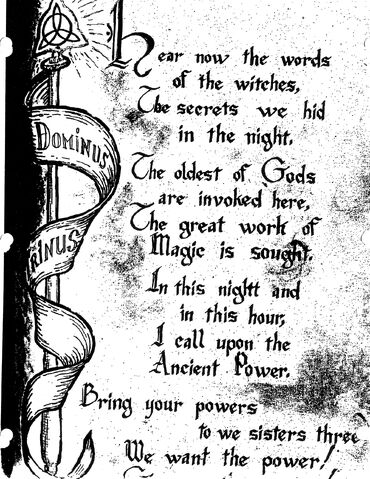 Hear now the words
of the witches,
The secrets we hid
in the night.
The oldest of Gods
are invoked here,
The great work of
Magic is sought.
In this nightt and
in this hour,
I call upon the
Ancient Power.
Bring your powers
to we sisters three
We want the power!
DOMINUS
RINUS